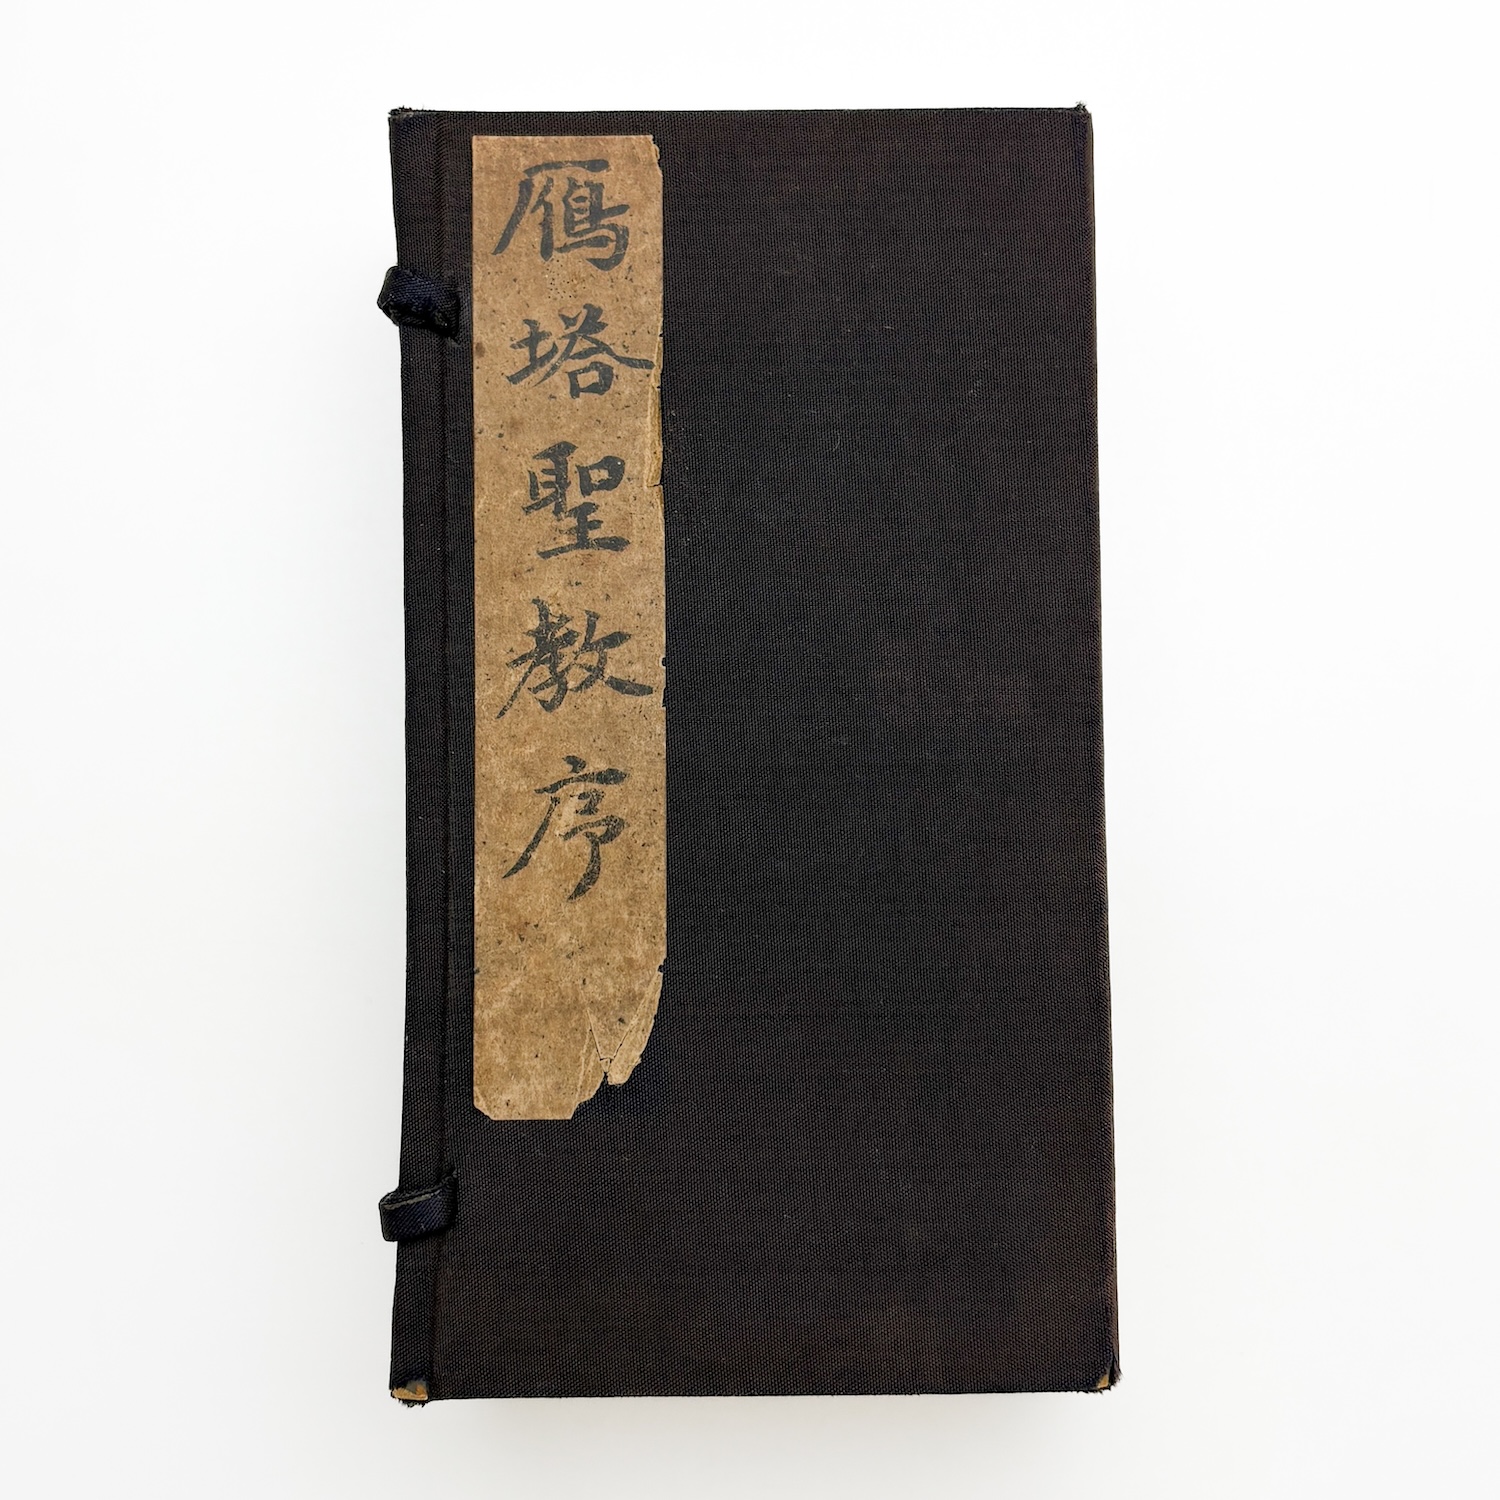 鴈塔聖教序